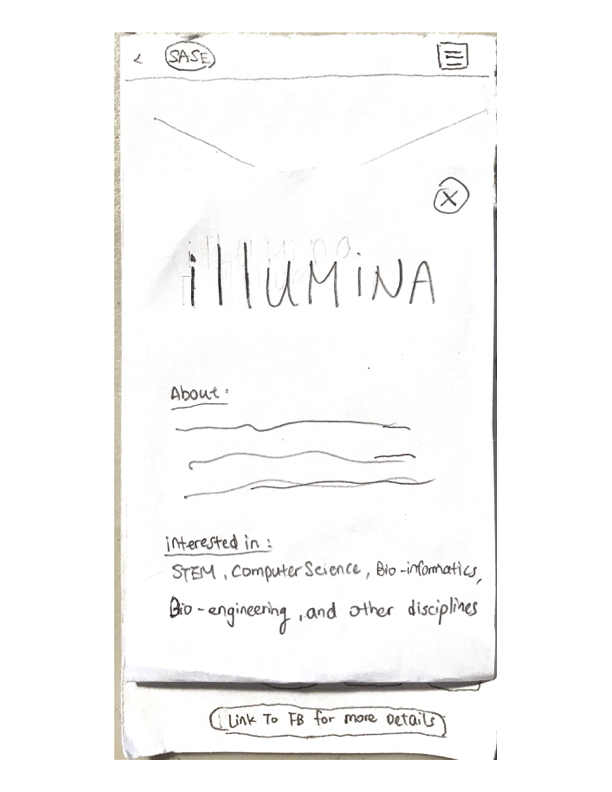 < SASE
X
illUMiNA
About:
interested in:
STEM, Computer Science, Bio-informatics,
Bio-engineering, and other disciplines
Link To FB for more Details